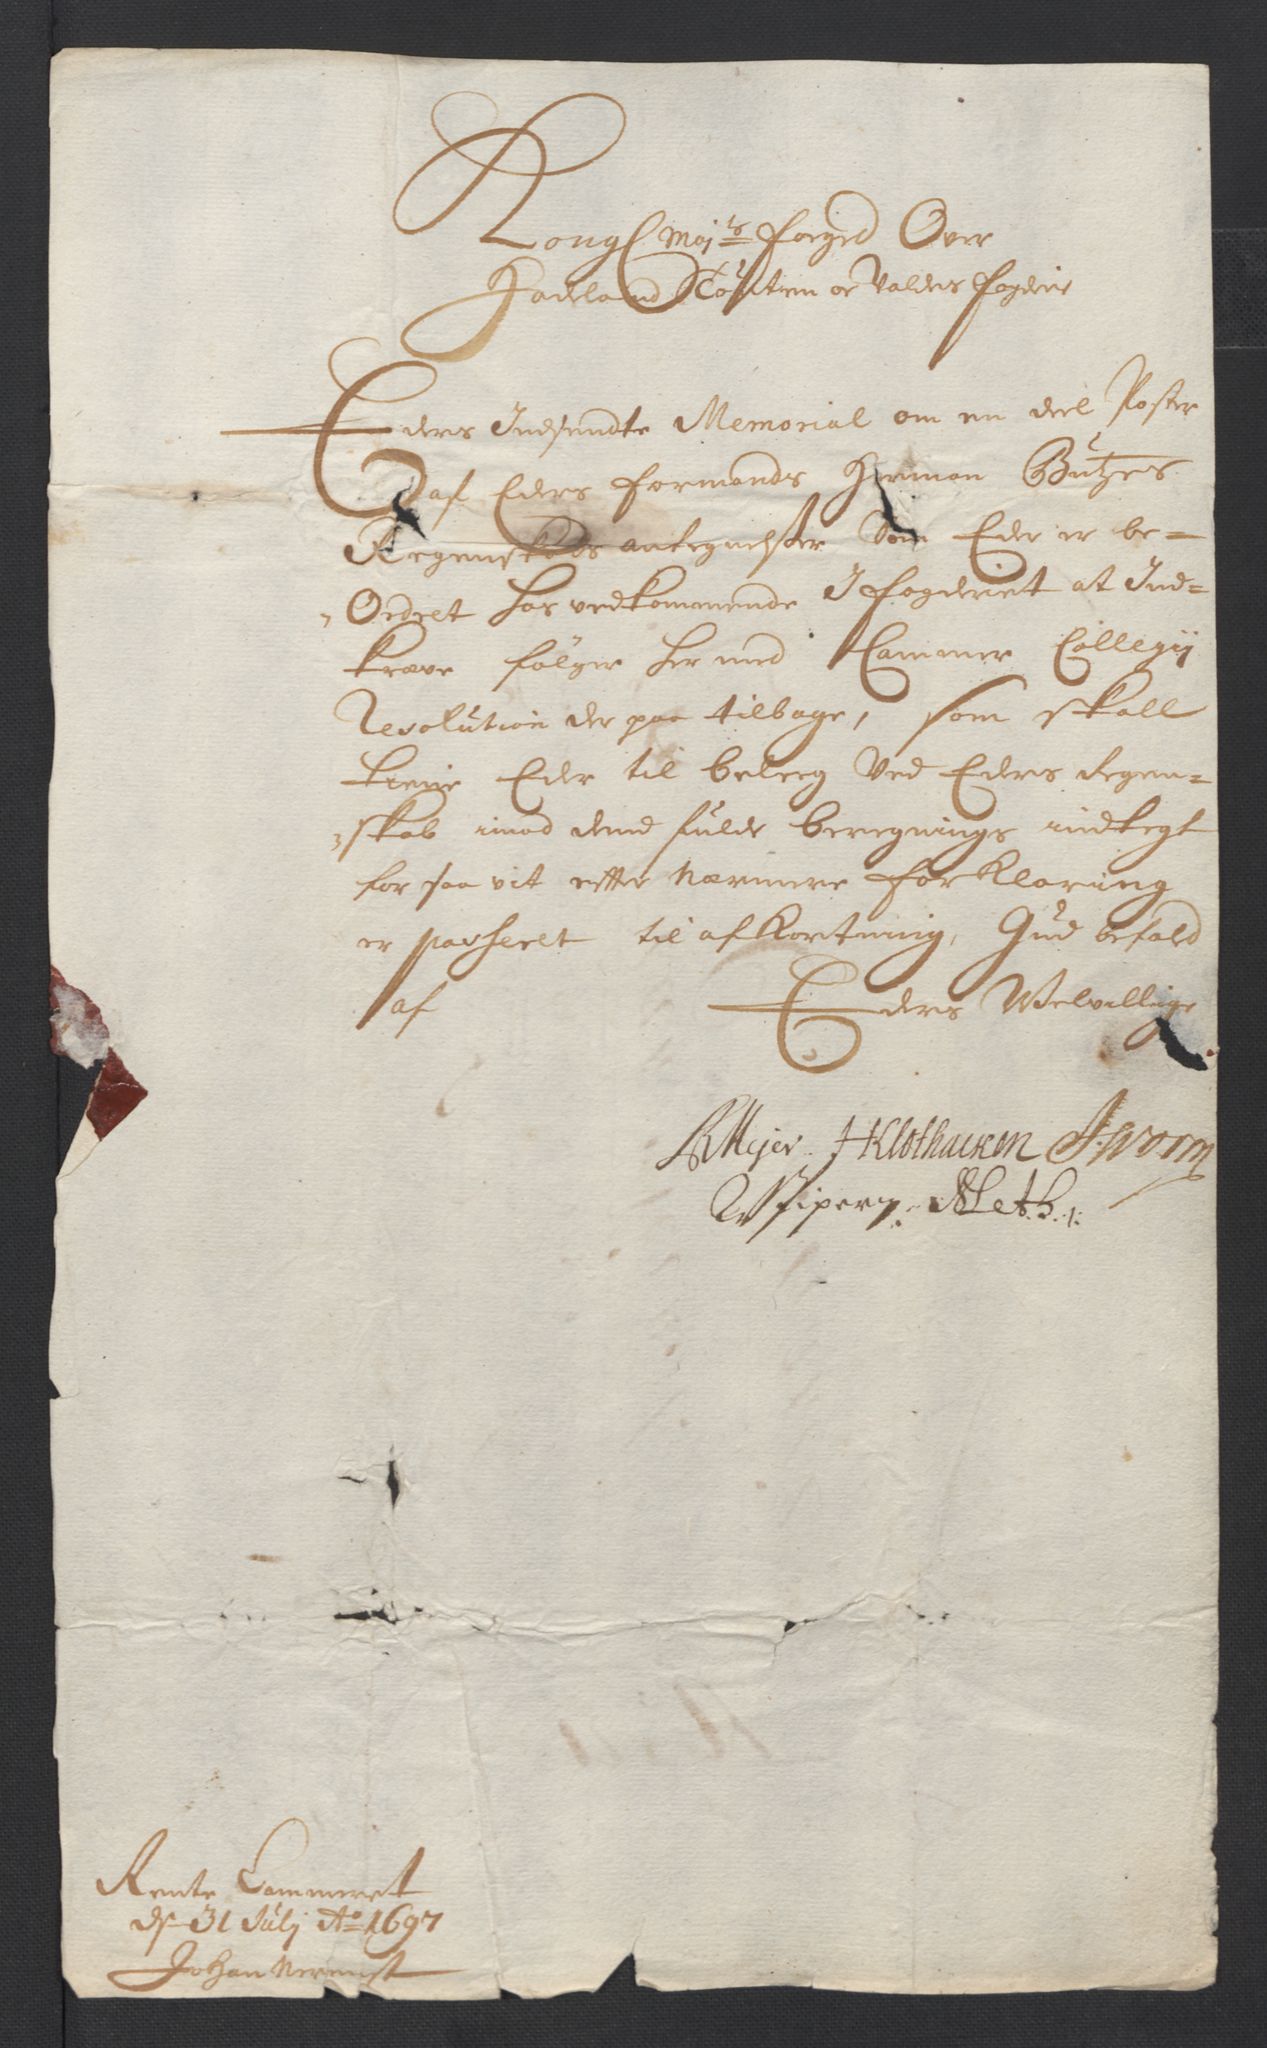 Kongl Maj:ts foeged Over
Hadeland Toten oc Valders fogderie
Eders Indsendte Memorial om en deel Poster
af Eders formands Herman Bützes
Regenskabs antegnelser som Eder er be-
Ordret hos vedkommende I fogderiet at Ind-
kræve følger her med Cammer Collegij
Resolution der paa tilbage, som skall
tiene Eder til beleeg Ved Eders Regen-
skab imod dend fulde beregnings indtegt
for saa vit effter Nærmere forklaring
er passeret til afkortning, Gud befald
af Eders Welvillige
Meyer. H Klothacken J. Worm
Piper Leth
Rente Cammeret
d 31 Julj Ao 1697
Johan